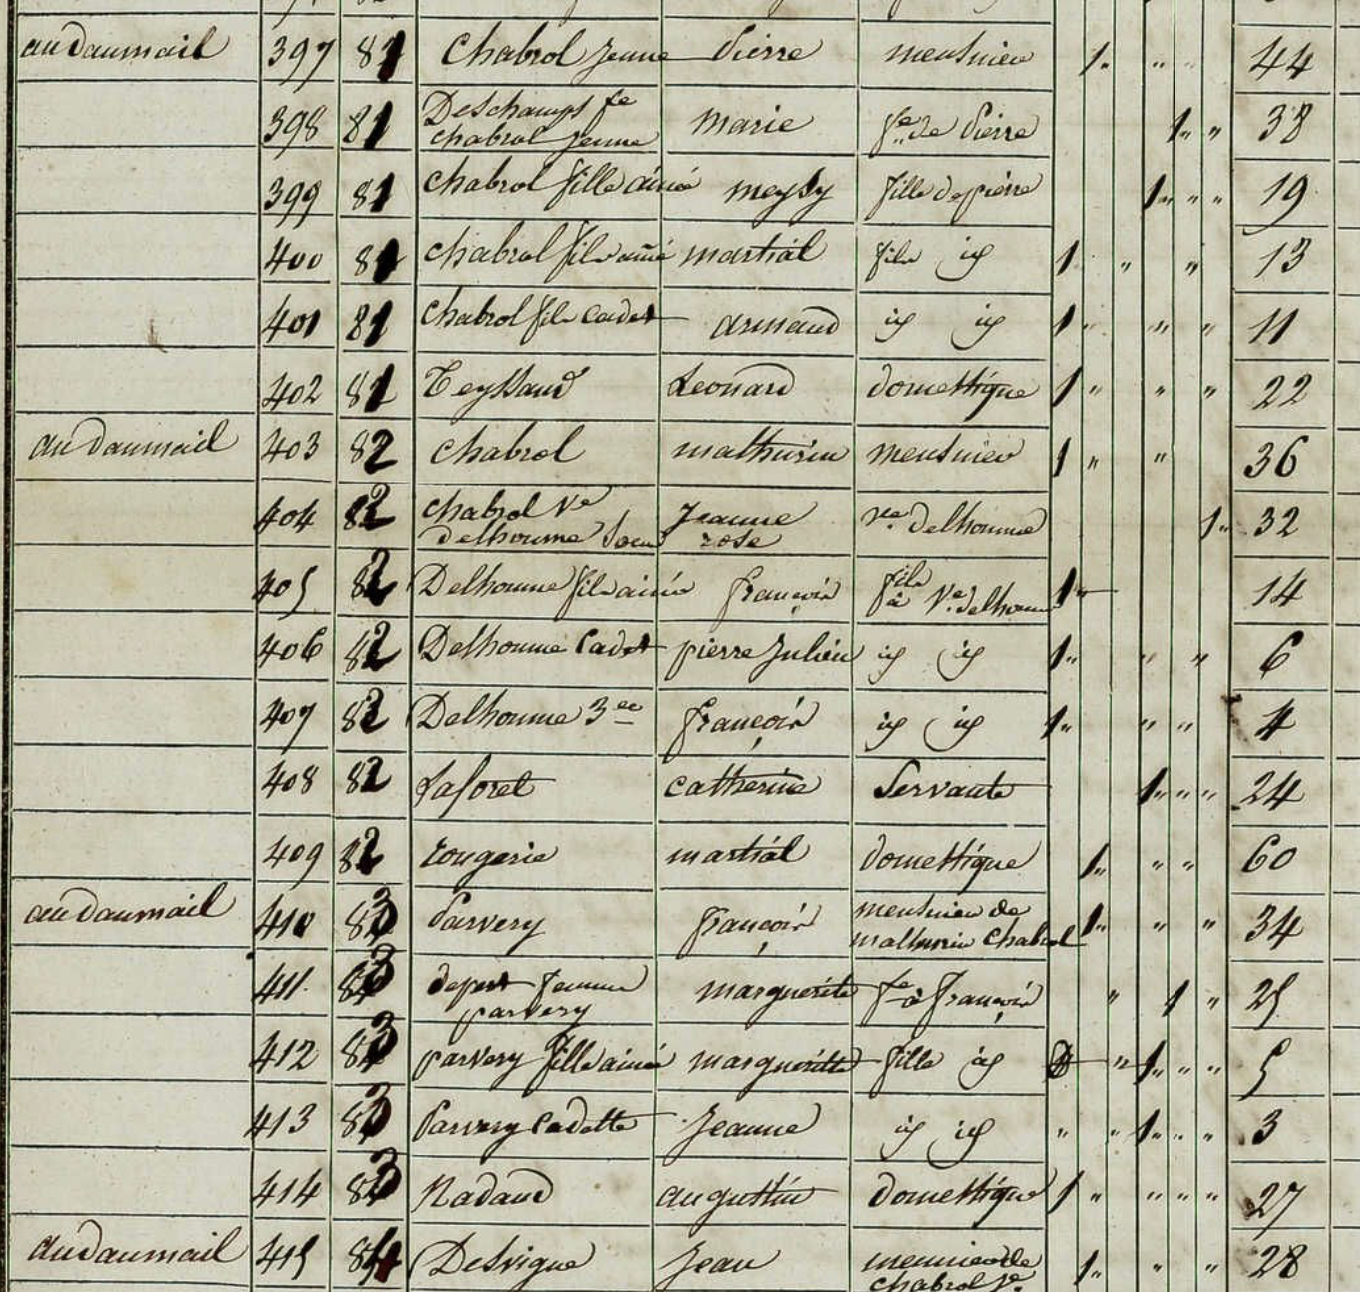 au Daumail 397 81 Chabrol jeune Pierre meusnier 1 " " 44
398 81 Deschamps fe
chabrol jeune marie fe de Pierre 1 " " 38
399 81 Chabrol fille ainée meyly fille de pierre 1 " " " 19
400 81 chabrol fils ainé martial fils id 1 " " 13
401 81 chabrol fils cadet armand id id 1 " " " 11
402 81 Teyssaud Leonard domestique 1 " " " 22
au Daumail 403 82 chabrol mathurin meusnier 1 " " 36
404 82 chabrol Ve
Delhoume soeur Jeanne
rose ve Delhoume 1 " 32
405 82 Delhoume fils ainé françois fils
à Ve Delhoume 1 14
406 82 Delhoume Cadet pierre Julien id id 1 " " " 6
407 82 Delhoume 3ee françois id id 1 " " " 4
408 82 Laforet catherine Servante 1 " " " 24
409 82 rougerie martial domestique 1 " " 60
au Daumail 410 83 Parvery françois meusnier de
mathurin Chabrol 1 " " " 34
411 83 depert femme
parvery marguerite fe à françois " 1 " 25
412 83 parvery fille ainée marguerite fille id " 1 " " " 5
413 83 Parvery Cadette Jeanne id id " " 1 " " 3
414 83 Nadaud augustin domestique 1 " " " " 27
au Daumail 415 84 Desvigne Jean meunier de
chabrol je 1 " " " 28